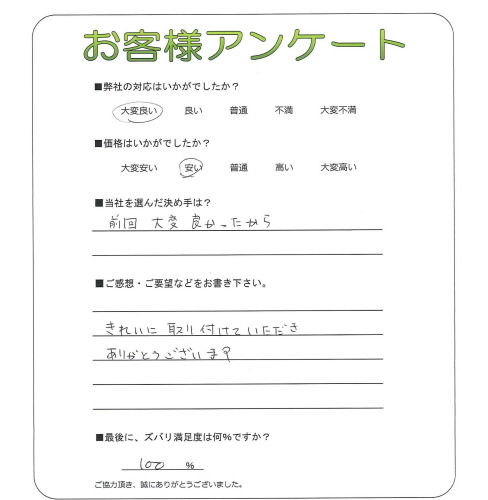 お客様アンケート
■弊社の対応はいかがでしたか？
大変良い 良い 普通 不満 大変不満
■価格はいかがでしたか？
大変安い 安い 普通 高い 大変高い
■当社を選んだ決め手は？
前回 大変 良かったから
■ご感想・ご要望などをお書き下さい。
きれいに 取り付けていただき
ありがとうございます
■最後に、ズバリ満足度は何%ですか？
100 %
ご協力頂き、誠にありがとうございました。